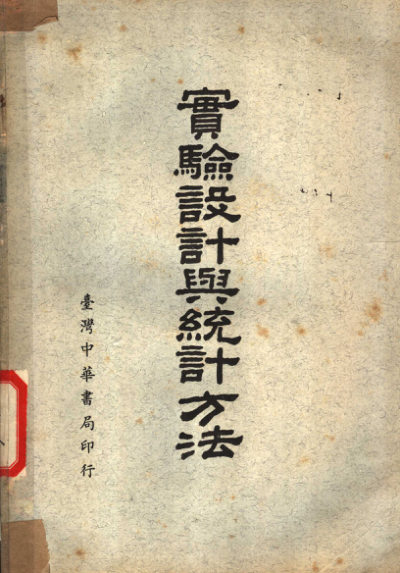 實驗設計與統計方法
臺灣中華書局印行